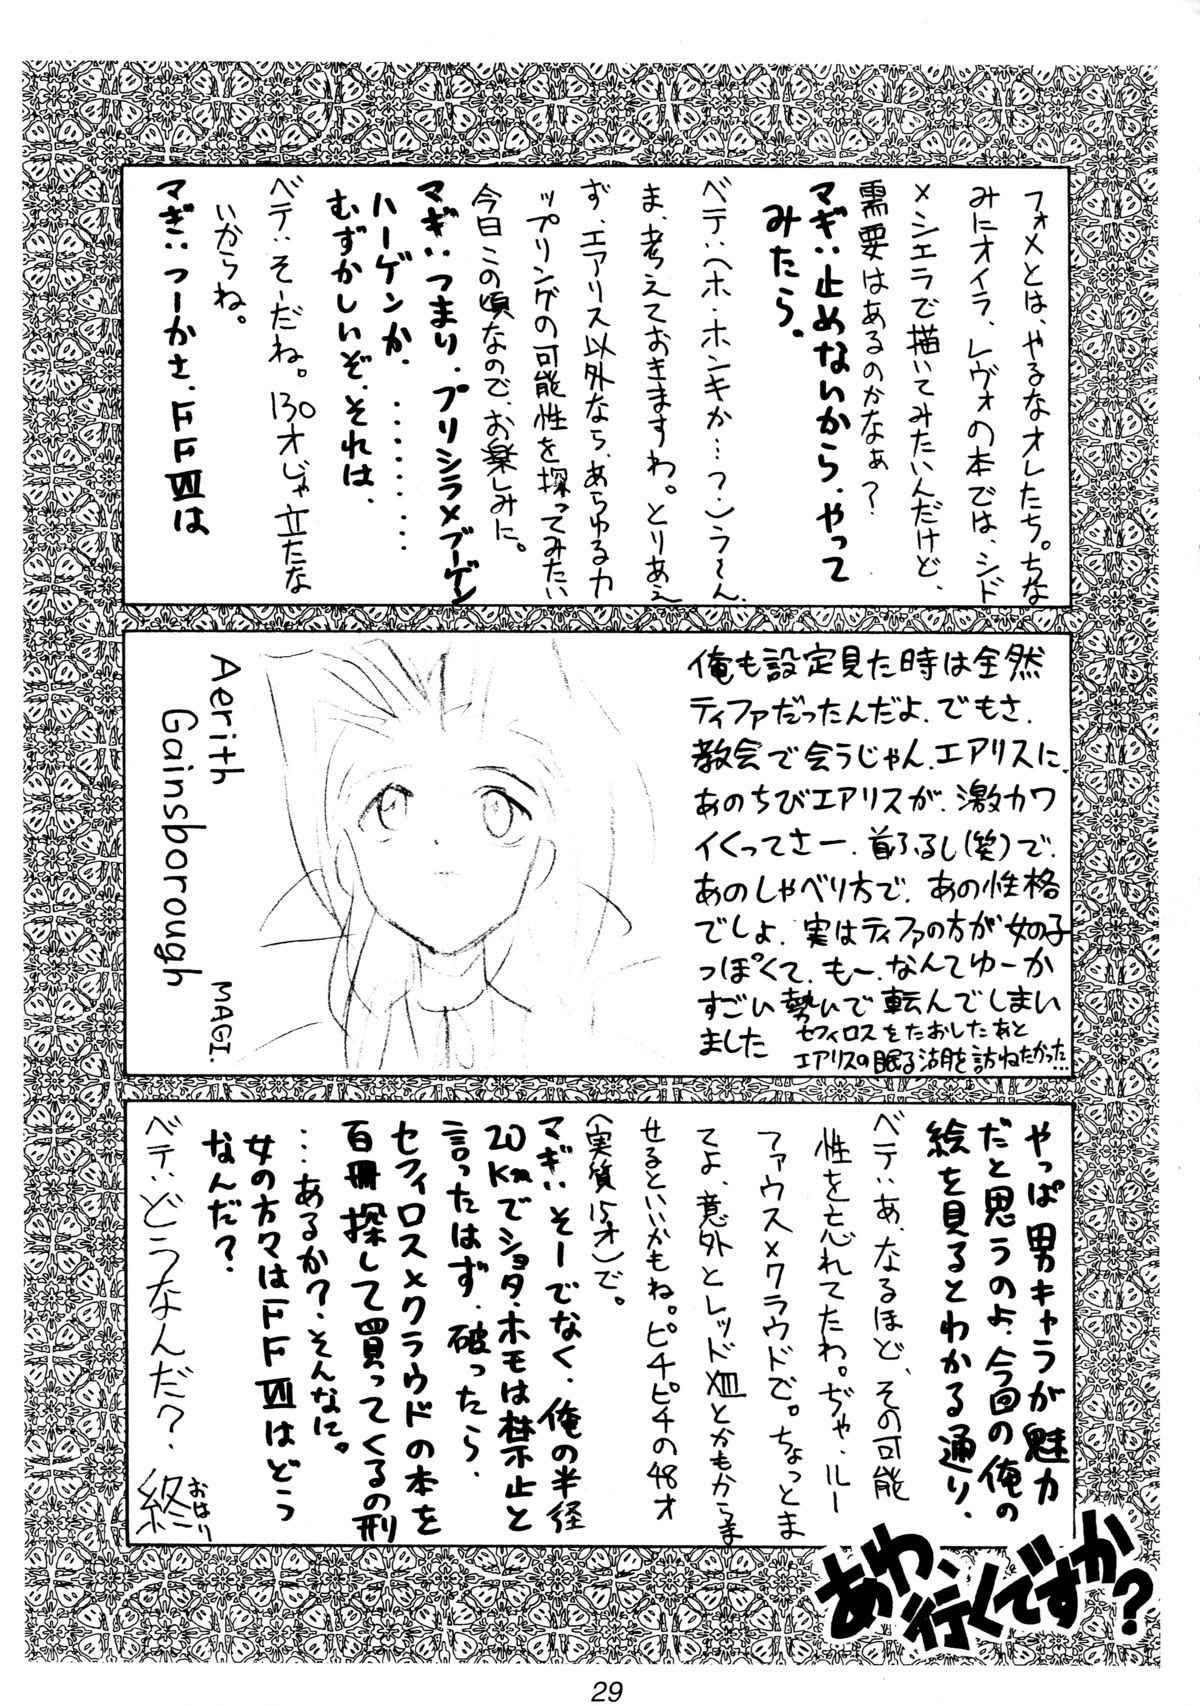 フォメとは、やるなオレたち。ちな
みにオイラ、レヴォの本では、シド
×シエラで描いてみたいんだけど、
需要はあるのかなぁ？
マギ：止めないから、やって
みたら。
ベテ：ヘホ・ホンキか…？）う〜ん、
ま、考えておきますわ。とりあえ
ず、エアリス以外なら、あらゆるカ
ップリングの可能性を探ってみたい
今日この頃なので、お楽しみに。
マギ：つまり、プリシラ×ブーゲン
ハーゲンか、・・・・・・・
むずかしいぞ、それは、
ベテ：そーだね。130才じゃ立たな
いからね。
マギ：つーかさ、FFⅦは
俺も設定見た時は全然
ティファだったんだよ、でもさ、
教会で会うじゃん、エアリスに、
あのちびエアリスが、激カワ
イくってさー、首ふるし(笑)で、
あのしゃべり方で、あの性格
でしょ、実はティファの方が女の子
っぽくて、もー、なんてゆーか
すごい勢いで転んでしまい
ました
セフィロスをたおしたあと
エアリスの眠る湖を訪ねたかった…
Aerith
Gainsborough
MAGI.
やっぱ男キャラが魅力
だと思うのよ、今回の俺の
絵を見るとわかる通り、
ベテ：あ、なるほど、その可能
性を忘れてたわ。ぢゃ、ルー
ファウス×クラウドで。ちょっとま
てよ、意外とレッドXIIIとかもからま
せるといいかもね。ピチピチの48才
（実質15才）で。
マギ：そーでなく、俺の半径
20Kmでショタ・ホモは禁止と
言ったはず、破ったら、
セフィロス×クラウドの本を
百冊探して買ってくるの刑
…あるか？、そんなに。
女の方々はFFⅦはどう
なんだ？
ベテ：どうなんだ？、
終
おはり
あわ、行くですか？
29